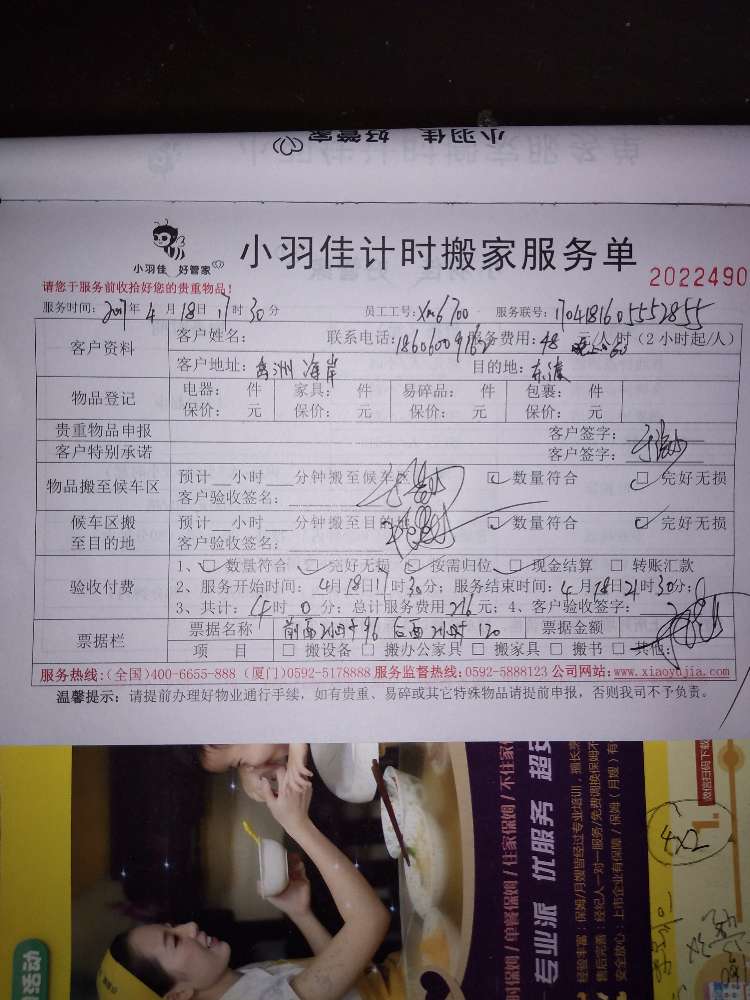 小羽佳 好管家
小羽佳 好管家
小羽佳计时搬家服务单
2022490
请您于服务前收拾好您的贵重物品!
服务时间:2017年4月18日17时30分 员工工号:Xm6700 服务联号:1704181605552855
客户资料
客户姓名: 联系电话:18606009162 服务费用:48元/小时(2小时起/人)
晚上60
客户地址:禹洲海岸 目的地:东渡
物品登记
电器: 件 家具: 件 易碎品: 件 包裹: 件
保价: 元 保价: 元 保价: 元 保价: 元
贵重物品申报 客户签字:
客户特别承诺 客户签字:
物品搬至候车区
预计__小时___分钟搬至候车区 数量符合 完好无损
客户验收签名:
候车区搬至目的地
预计__小时___分钟搬至目的地 数量符合 完好无损
客户验收签名:
验收付费
1、数量符合 完好无损 按需归位 现金结算 转账汇款
2、服务开始时间:4月18日17时30分;服务结束时间:4月18日21时30分;
3、共计:4时0分;总计服务费用216元;4、客户验收签字:
票据栏
票据名称 前面2小时96 后面2小时120 票据金额
项 目 搬设备 搬办公家具 搬家具 搬书 其他:
服务热线:(全国)400-6655-888 (厦门)0592-5178888 服务监督热线:0592-5888123 公司网站:www.xiaoyujia.com
温馨提示:请提前办理好物业通行手续,如有贵重、易碎或其它特殊物品请提前申报,否则我司不予负责。
专业派 优服务 超安
时保姆/单餐保姆/住家保姆/不住家保
经验丰富:保姆/月嫂皆经过专业培训,擅长烹
售后完善:经纪人一对一服务/免费调换保姆不
安全放心:上市企业有保障/保姆(月嫂)有
微信扫码下载
1.
4×2
活动